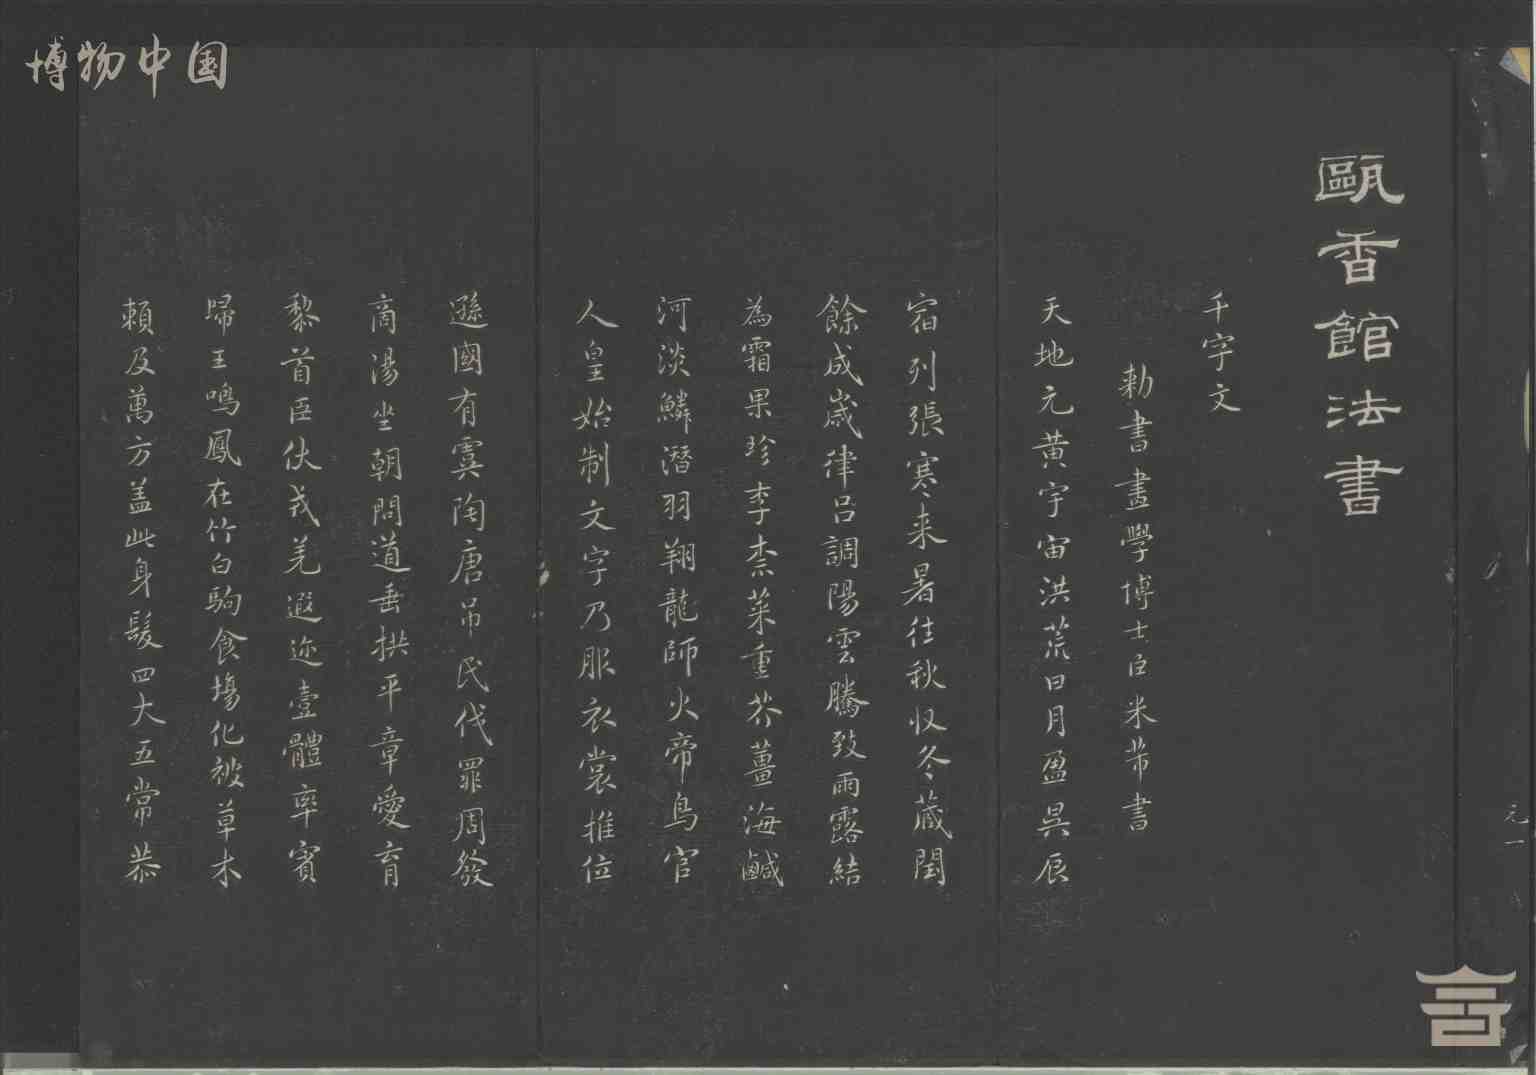 博物中国
甌香館法書
千字文
勅書畫學博士臣米芾書
天地元黃宇宙洪荒日月盈昃辰
宿列張寒来暑往秋收冬藏閏
餘成歲律呂調陽雲騰致雨露結
為霜果珍李柰菜重芥薑海鹹
河淡鱗潛羽翔龍師火帝鳥官
人皇始制文字乃服衣裳推位
遜國有虞陶唐吊民伐罪周發
商湯坐朝問道垂拱平章愛育
黎首臣伏戎羌遐迩壹體率賓
歸王鳴鳳在竹白駒食場化被草木
賴及萬方盖此身髮四大五常恭
元一